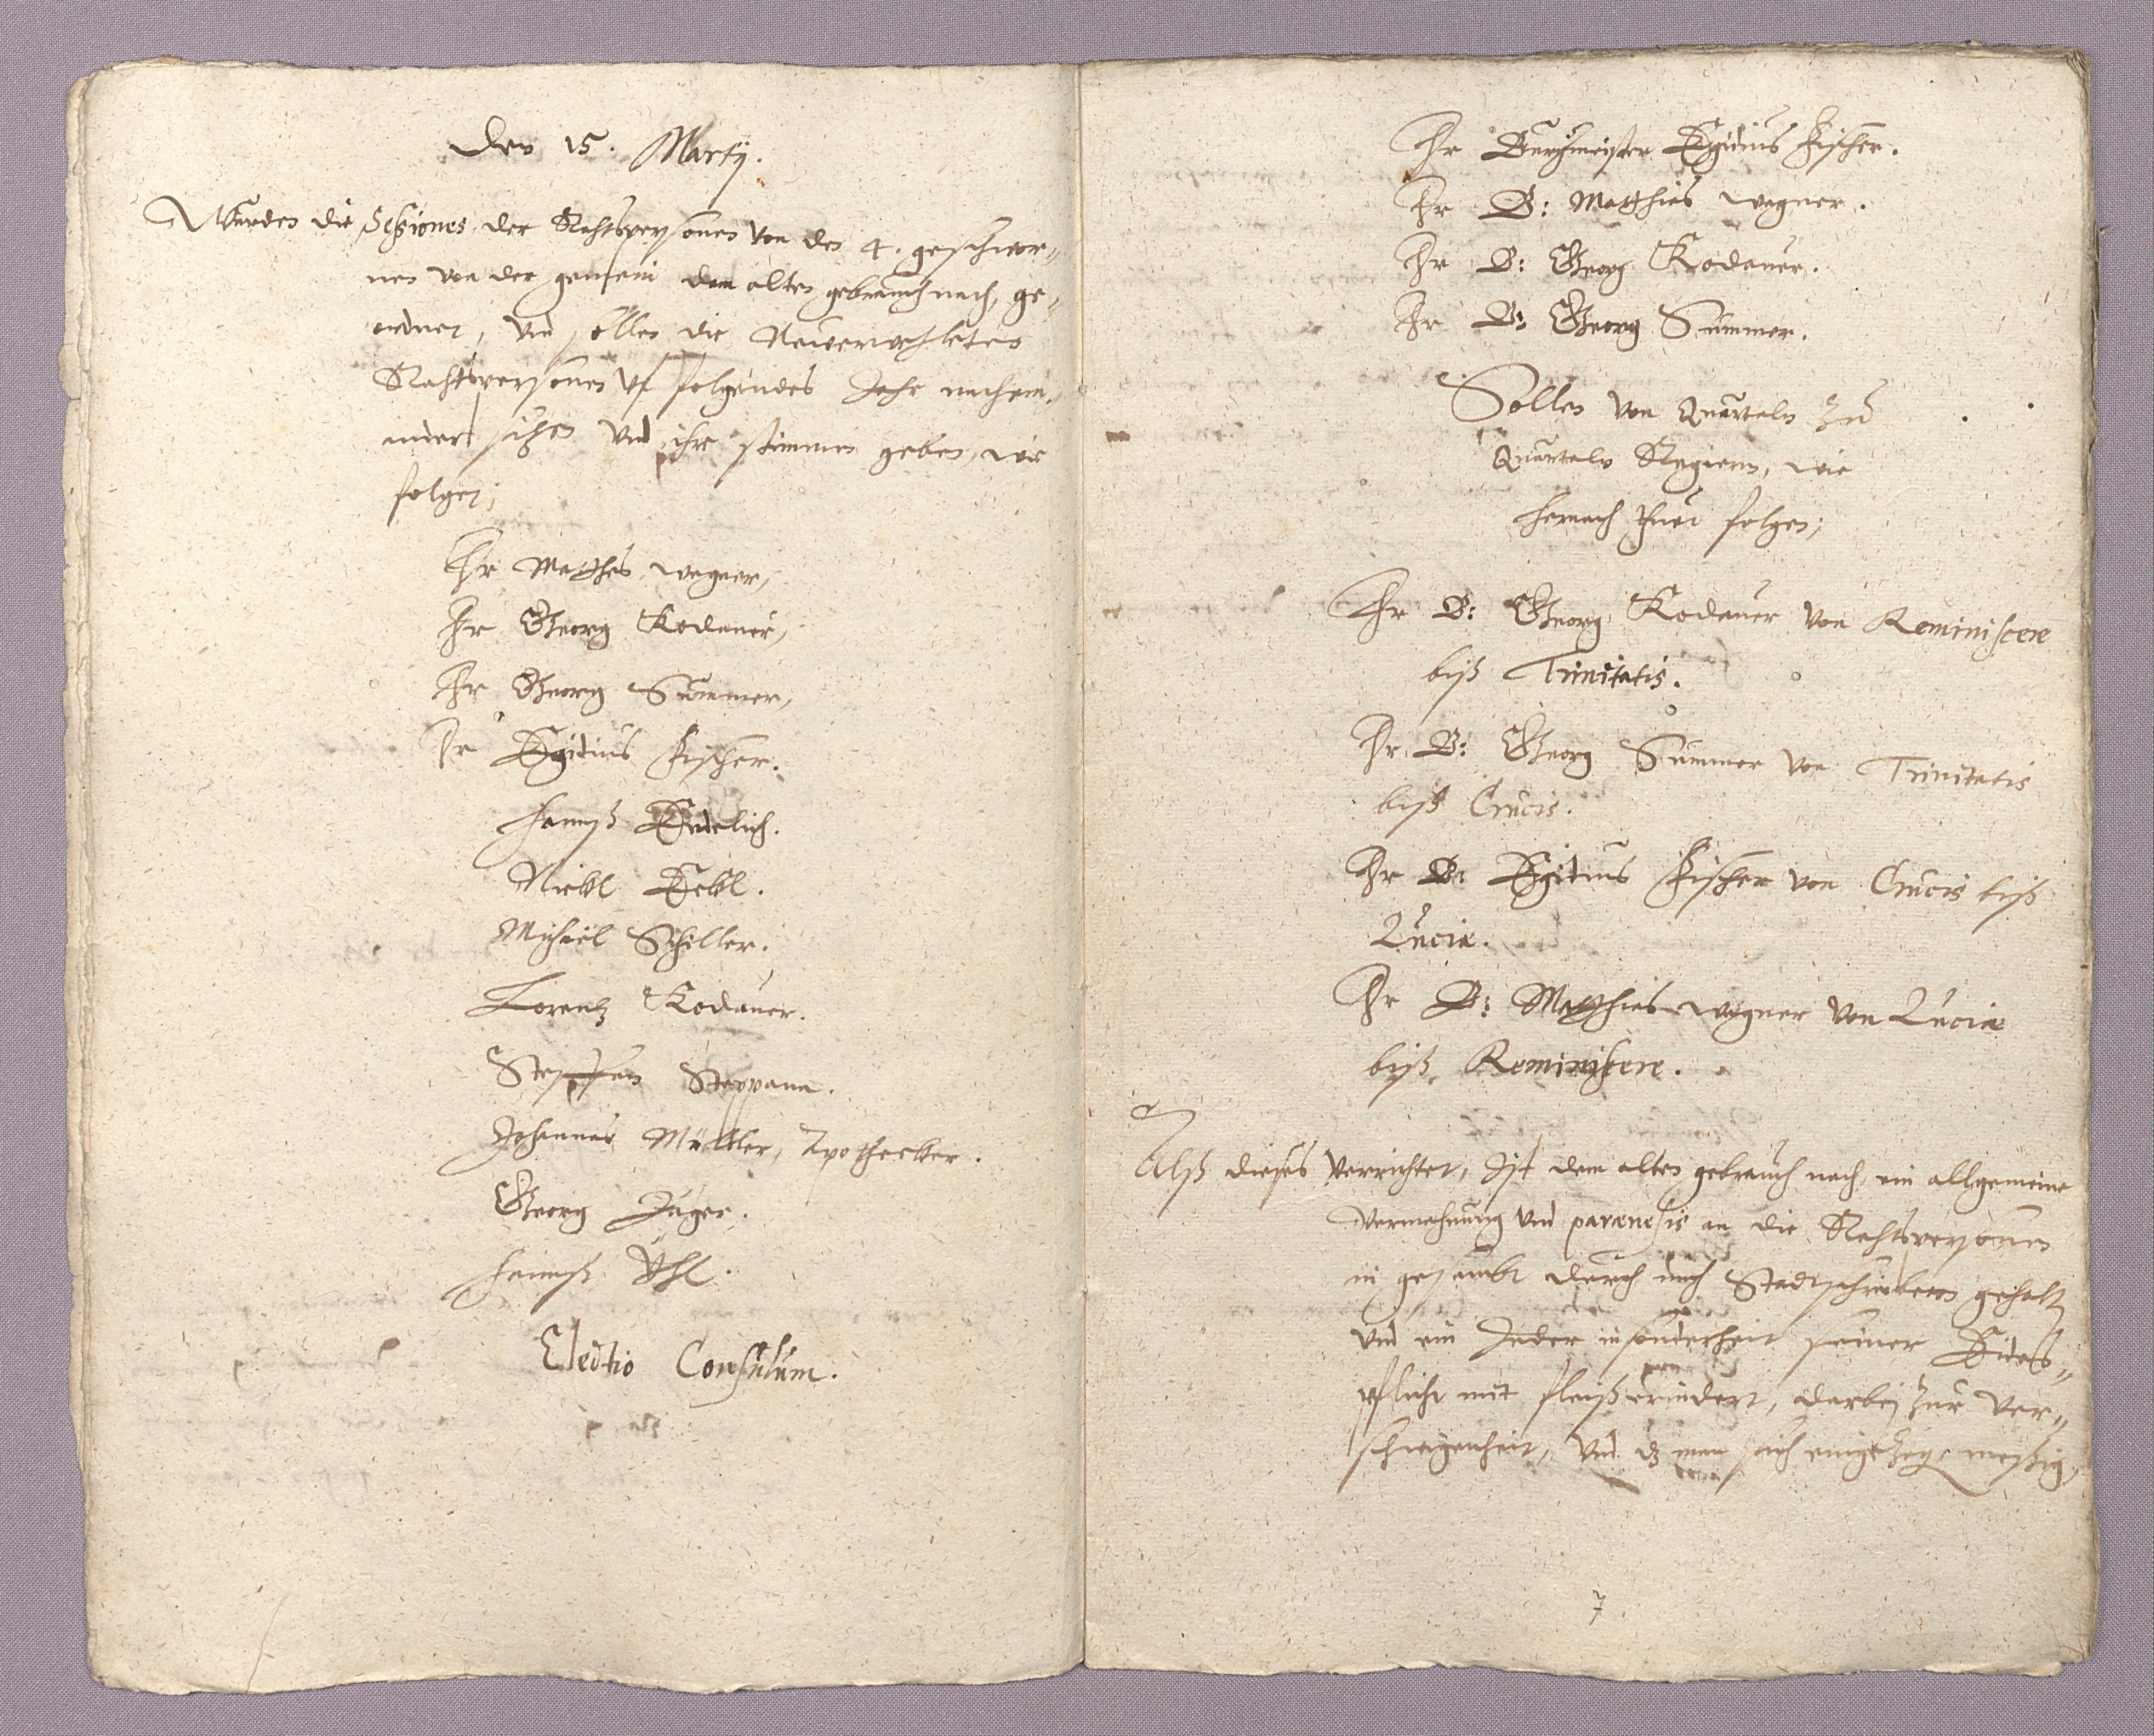 Den 15. Martij.
Wurden die Sessiones der Rahtspersonen von den 4. geschwor„
nen von der gemein dem alten gebrauch nach, ge„
ordnet, und sollen die Neuerwehleten
Rahtspersonen uf folgendes Jahr nachein„
ander sitzen und ihre stimmen geben, wie
folget;
Hr Matthes Wegner,
Hr Georg Kodauer,
Hr Georg Summer,
Hr Egidius Fischer.
Hannß Endelich.
Michael Schiller.
Lorentz Kodauer.
Steffen Steppann.
Johannes Müller, Apothecker.
Georg Jäger.
Hannß
Electio Consulum.
Hr Burgmeister Egidius Fischer.
Hr B: Matthias Wegner.
Hr B: Georg Kodauer.
Hr B: Georg Summer.
Sollen von Quartaln zu
Quartaln Regiern, wie
hernach thuet folgen;
Hr B: Georg Kodauer von Reminiscere
biß Trinitatis.
Hr B: Georg Summer von Trinitatis
biß Crucis.
Hr B: Egidius Fischer von Crucis biß
Luciæ.
Hr B: Matthias Wegner von Luciæ
biß Reminiscere.
Alß dieses verrichtet, Ist dem alten gebrauch nach, ein allgemeine
Vermahnung und parænesis an die Rahtspersonen
in gesambt durch mich Stadtschreibern gehalt
und ein Jeder insonderheit seiner Eides„
pflicht mit fleiß erindert, darbej zur Ver„
schwigenheit, und dz man sich eingezog, meßig,
7